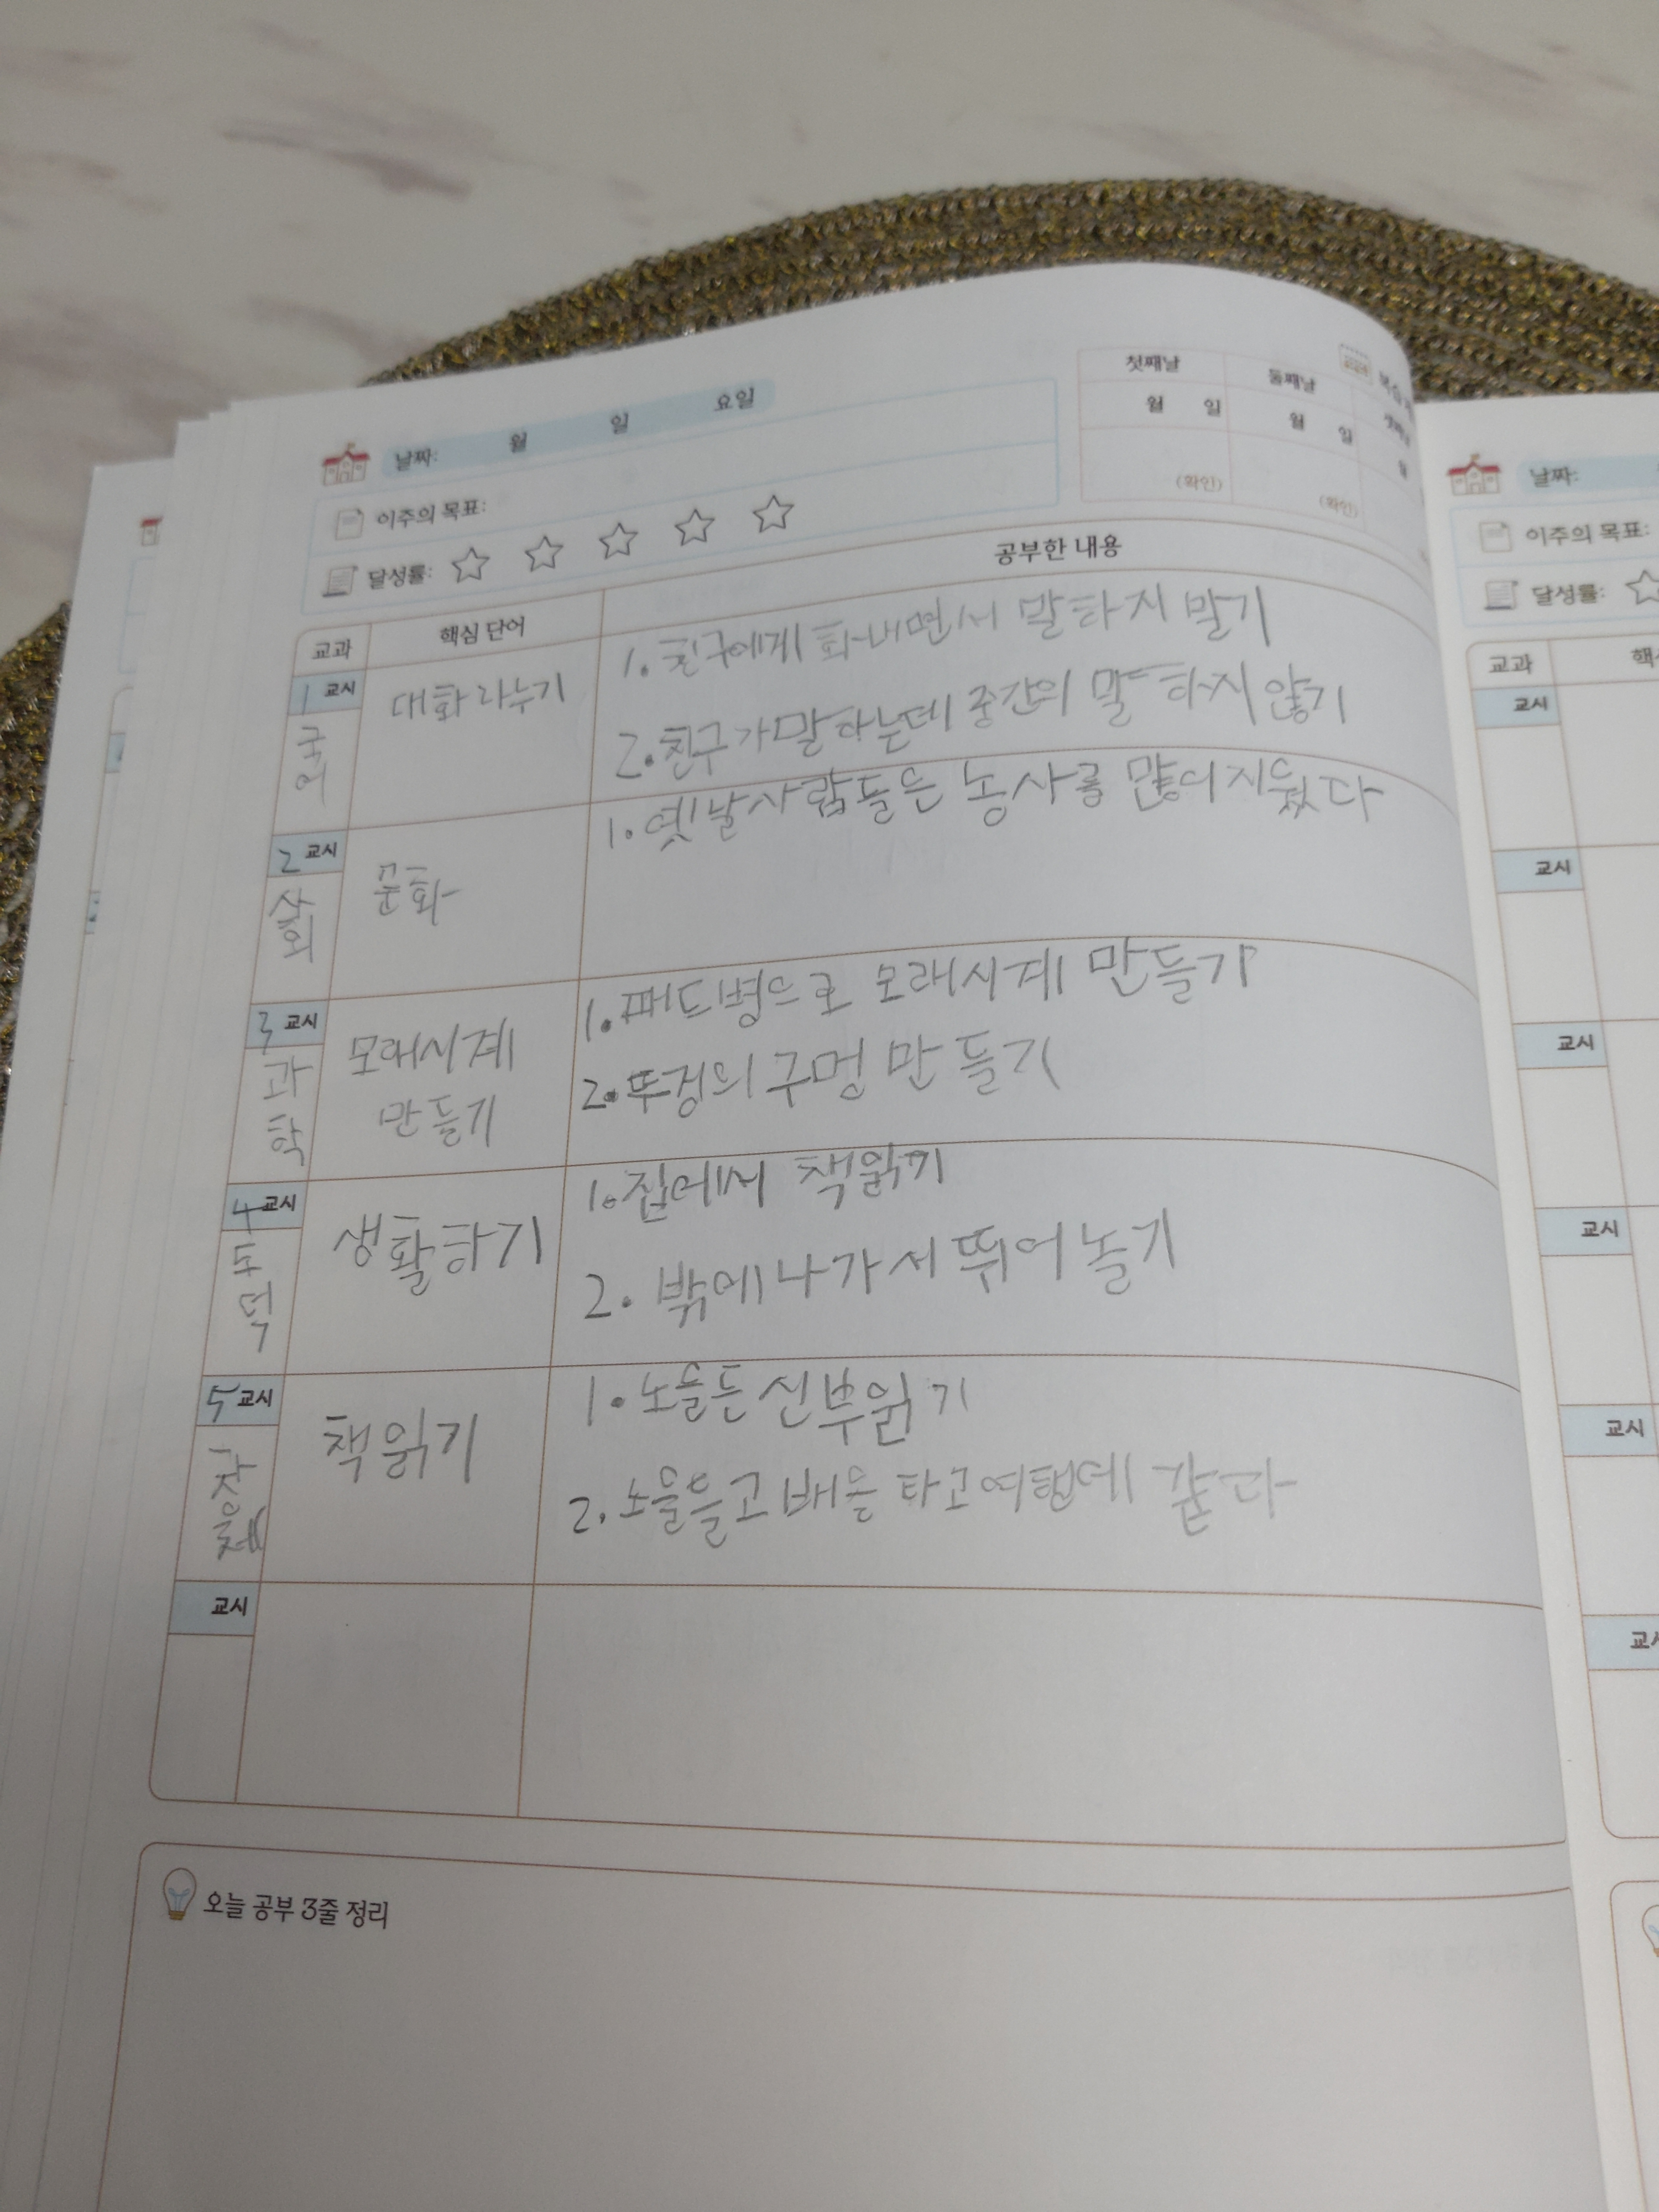 날짜: 월 일 요일
이주의 목표:
달성률:
첫째날 둘째날
월 일 월 일 월
(확인) (확인)
교과 핵심 단어 공부한 내용
1교시
국어
대화 나누기
1. 친구에게 화내면서 말하지 말기
2. 친구가 말하는데 중간의 말 하지 않기
2교시
사회
문화
1. 옛날사람들은 농사를 많이 지웠다
3교시
과학
모래시계
만들기
1. 패드병으로 모래시계 만들기
2. 뚜겅의 구멍 만들기
4교시
도덕
생활하기
1. 집에서 책읽기
2. 밖에 나가서 뛰어 놀기
5교시
책읽기
1. 노를든신부읽기
2. 노를들고 배를 타고
교시
오늘 공부 3줄 정리
날짜:
이주의 목표:
달성률:
교과
교시
교시
교시
교시
교시